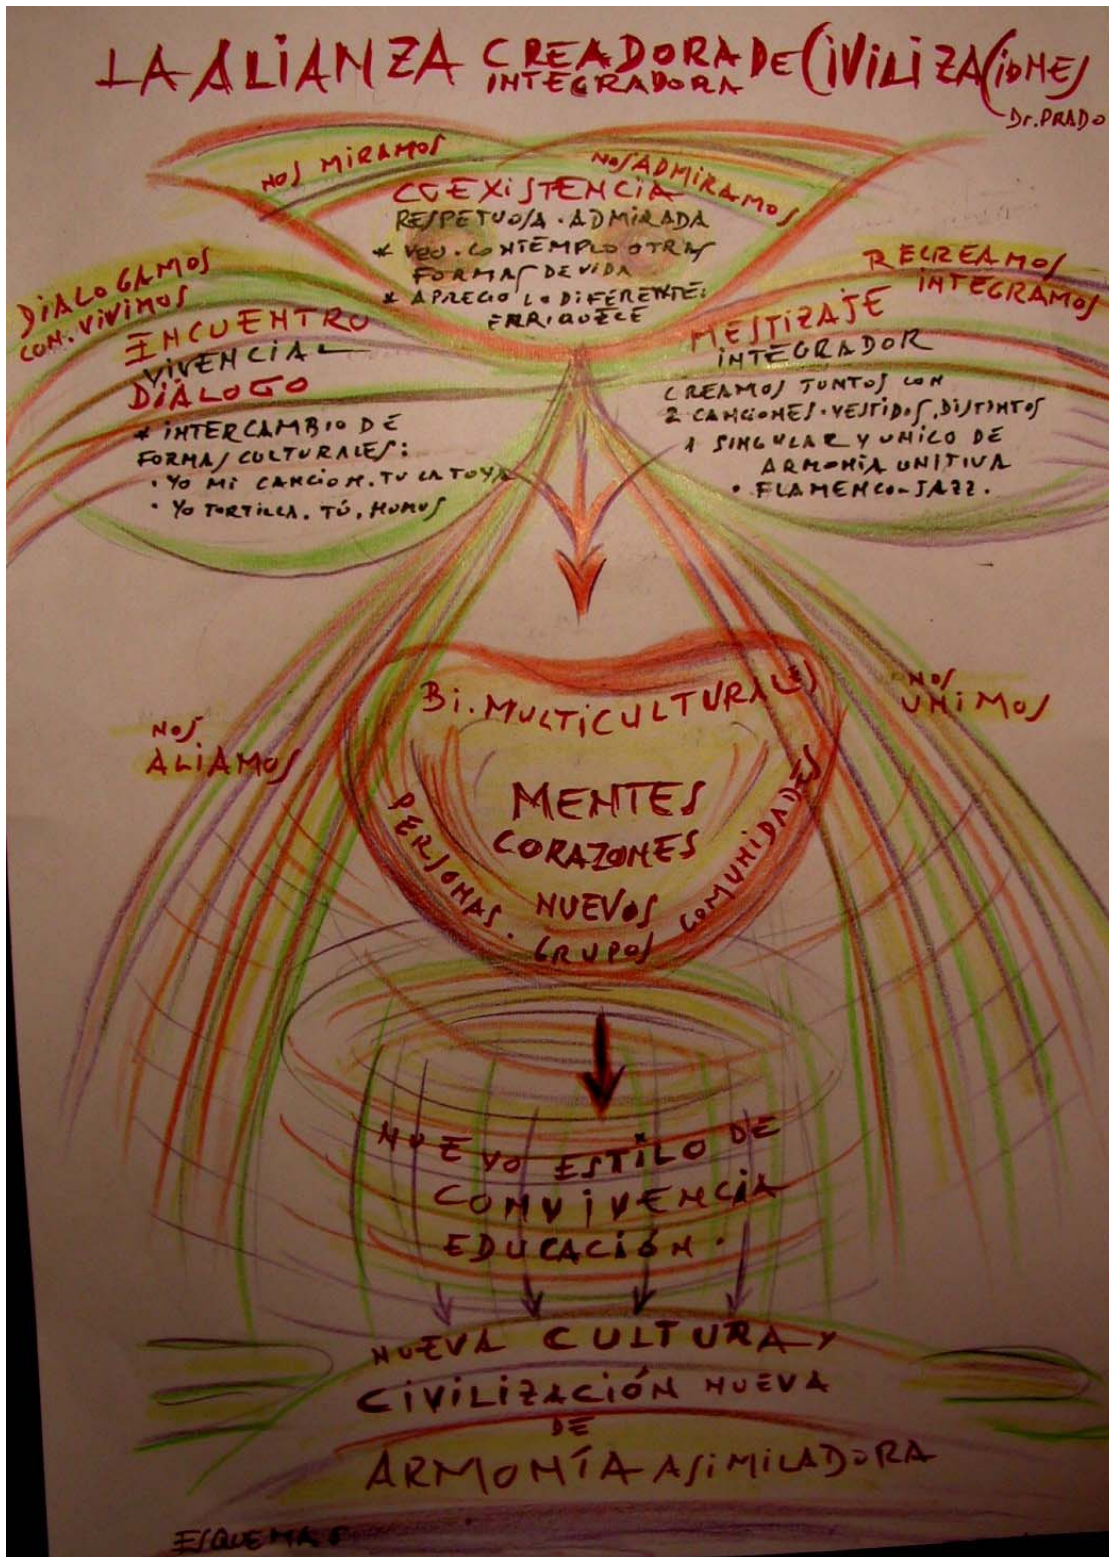 LA ALIANZA CREADORA DE CIVILIZACIONES
INTEGRADORA
Dr. PRADO
NOS MIRAMOS
NOS ADMIRAMOS
COEXISTENCIA
RESPETUOSA . ADMIRADA
* VEO . CONTEMPLO OTRAS
FORMAS DE VIDA
* APRECIO LO DIFERENTE:
ENRIQUECE
DIALOGAMOS
CON.VIVIMOS
ENCUENTRO
VIVENCIAL
DIÁLOGO
* INTERCAMBIO DE
FORMAS CULTURALES:
· YO MI CANCION. TU LA TUYA
· YO TORTILLA. TÚ, HUMUS
RECREAMOS
INTEGRAMOS
MESTIZAJE
INTEGRADOR
CREAMOS JUNTOS CON
2 CANCIONES . VESTIDOS, DISTINTOS
1 SINGULAR Y UNICO DE
ARMONÍA UNITIVA
· FLAMENCO-JAZZ.
NOS
ALIAMOS
NOS
UNIMOS
Bi. MULTICULTURALES
MENTES
CORAZONES
NUEVOS
PERSONAS. GRUPOS COMUNIDADES
NUEVO ESTILO DE
CONVIVENCIA
EDUCACIÓN .
NUEVA CULTURA Y
CIVILIZACIÓN NUEVA
DE
ARMONÍA ASIMILADORA
ESQUEMA